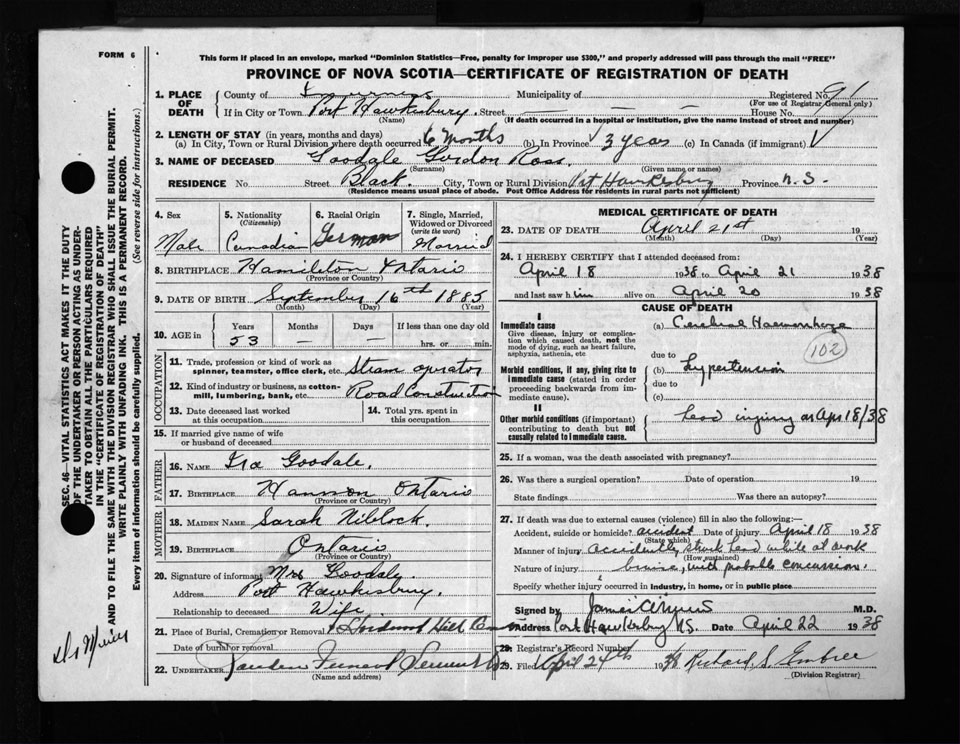 FORM 6
This form if placed in an envelope, marked "Dominion Statistics—Free, penalty for improper use $300," and properly addressed will pass through the mail "FREE"
PROVINCE OF NOVA SCOTIA—CERTIFICATE OF REGISTRATION OF DEATH
SEC. 46—VITAL STATISTICS ACT MAKES IT THE DUTY
OF THE UNDERTAKER OR PERSON ACTING AS UNDER-
TAKER TO OBTAIN ALL THE PARTICULARS REQUIRED
IN THE "CERTIFICATE OF REGISTRATION OF DEATH"
AND TO FILE THE SAME WITH THE DIVISION REGISTRAR WHO SHALL ISSUE THE BURIAL PERMIT.
WRITE PLAINLY WITH UNFADING INK. THIS IS A PERMANENT RECORD.
Every item of information should be carefully supplied. (See reverse side for instructions.)
1. PLACE OF DEATH County of Inverness Municipality of Registered No. 91
(For use of Registrar General only)
If in City or Town Port Hawkesbury Street — — House No. —
(Name) (If death occurred in a hospital or institution, give the name instead of street and number)
2. LENGTH OF STAY (in years, months and days)
(a) In City, Town or Rural Division where death occurred 6 months (b) In Province 3 years (c) In Canada (if immigrant)
3. NAME OF DECEASED Goodale Gordon Ross
(Surname) (Given name or names)
RESIDENCE No. Street Black. City, Town or Rural Division Port Hawkesbury Province N.S.
(Residence means usual place of abode. Post Office Address for residents in rural parts not sufficient)
4. Sex Male
5. Nationality (Citizenship) Canadian
6. Racial Origin German
7. Single, Married, Widowed or Divorced (write the word) Married
8. BIRTHPLACE Hamilton Ontario
(Province or Country)
9. DATE OF BIRTH September 16th 1885
(Month) (Day) (Year)
10. AGE in Years 53 Months — Days — If less than one day hrs. or min.
OCCUPATION
11. Trade, profession or kind of work as spinner, teamster, office clerk, etc.
12. Kind of industry or business, as cotton-mill, lumbering, bank, etc. Road Construction
13. Date deceased last worked at this occupation
14. Total yrs. spent in this occupation
15. If married give name of wife or husband of deceased
FATHER
16. NAME Ira Goodale.
17. BIRTHPLACE Ontario
(Province or Country)
MOTHER
18. MAIDEN NAME Sarah Niblock.
19. BIRTHPLACE Ontario
(Province or Country)
20. Signature of informant Mrs Goodale
Address Port Hawkesbury.
Relationship to deceased Wife
21. Place of Burial, Cremation or Removal
Date of burial or removal
22. UNDERTAKER Funeral
(Name and address)
MEDICAL CERTIFICATE OF DEATH
23. DATE OF DEATH April 21st 19
(Month) (Day) (Year)
24. I HEREBY CERTIFY that I attended deceased from:
April 18 1938 to April 21 1938
and last saw h im alive on April 20 1938
CAUSE OF DEATH
I
Immediate cause
Give disease, injury or complication which caused death, not the mode of dying, such as heart failure, asphyxia, asthenia, etc
(a) Cerebral Haemorrhage
102
due to
Morbid conditions, if any, giving rise to immediate cause (stated in order proceeding backwards from immediate cause).
(b) Hypertension
due to
(c)
II
Other morbid conditions (if important) contributing to death but not causally related to immediate cause.
head injury on Apr 18/38
25. If a woman, was the death associated with pregnancy?
26. Was there a surgical operation? Date of operation 19
State findings Was there an autopsy?
27. If death due to external causes (violence) fill in also the following:—
Accident, suicide or homicide? accident Date of injury April 18 1938
(State which)
Manner of injury accidently struck head while at work
(How sustained)
Nature of injury bruise, with probable concussion.
Specify whether injury occurred in industry, in home, or in public place
Signed by M.D.
Address Port Hawkesbury N.S. Date April 22 1938
28. Registrar's Record Number
29. Filed April 24th 1938 Richard S. Embree
(Division Registrar)